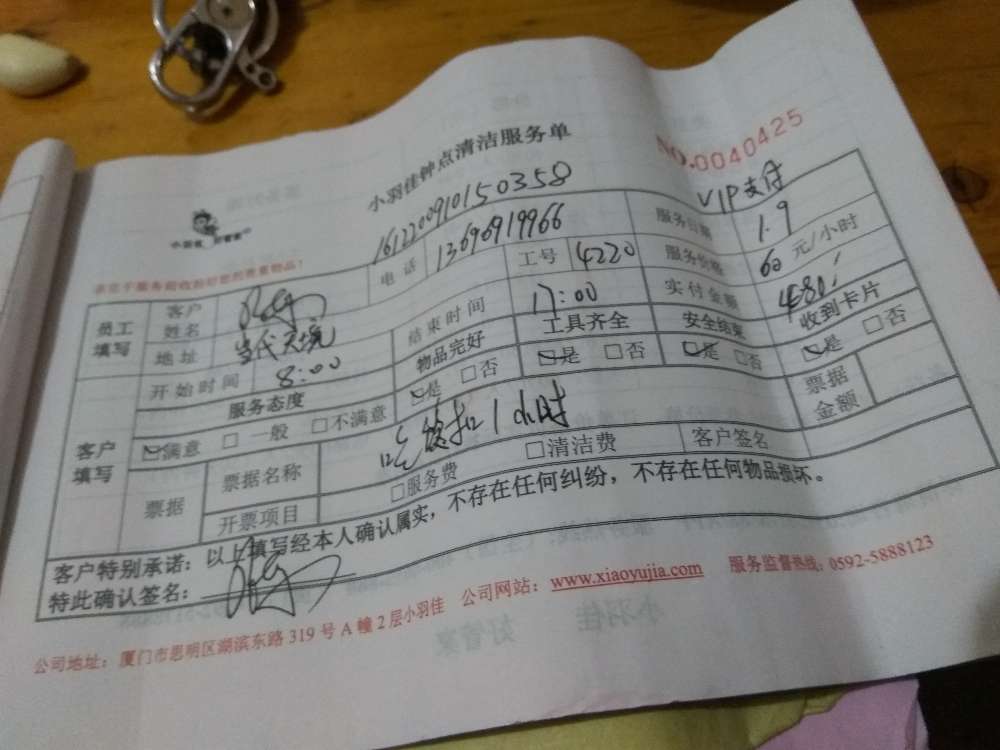 小羽佳钟点清洁服务单
NO.0040425
1612200910150358
VIP支付
小羽佳 好管家
亲在于服务前收拾好您的贵重物品!
员工填写 客户姓名 电话 13696919966 服务日期 1.9
地址 当代天境 工号 4220 服务价格 60 元/小时
开始时间 8:00 结束时间 17:00 实付金额 480
客户填写 服务态度 物品完好 工具齐全 安全结束 收到卡片
☑满意 □一般 □不满意 ☑是 □否 ☑是 □否 ☑是 □否 ☑是 □否
票据 票据名称 吃饭扣1小时 票据金额
开票项目 □服务费 □清洁费 客户签名
客户特别承诺:以上填写经本人确认属实,不存在任何纠纷,不存在任何物品损坏。
特此确认签名:
公司地址:厦门市思明区湖滨东路319号A幢2层小羽佳 公司网站:www.xiaoyujia.com 服务监督热线:0592-5888123
小羽佳
好管家